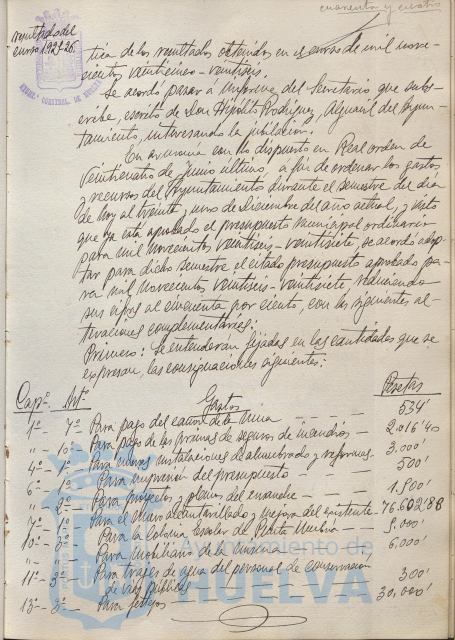 cuarenta y cuatro
resultados del
curso 1925-26.
tica de los resultados obtenidos en el curso de mil nove-
cientos veinticinco-veintiseis.
Se acordó pasar a informe del Secretario que subs-
cribe, escrito de Don Hipólito Rodriguez, Alguacil del Ayun-
tamiento, interesando la jubilación.
En armonía con lo dispuesto en Real orden de
veinticuatro de Junio último, a fin de ordenar los gastos
y recursos del Ayuntamiento durante el semestre del dia
de hoy al treinta y uno de Diciembre del año actual, y visto
que ya está aprobado el presupuesto municipal ordinario
para mil novecientos veintiseis-veintisiete, se acordó adop-
tar para dicho semestre el citado presupuesto aprobado pa-
ra mil novecientos veintiseis-veintisiete, reduciendo
sus cifras al cincuenta por ciento, con las siguientes al-
teraciones complementarias:
Primero: Se entenderán fijadas en las cantidades que se
expresan, las consignaciones siguientes:
Capº. Artº. Gastos Pesetas
1º - 7º Para pago del canon de la mina - - - - 534'
" - 10º Para pago de las primas de seguros de incendios - 2.016'40
4º - 1º Para nuevas instalaciones de alumbrado y reformas. 3.000'
6º - 1º Para impresión del presupuesto - - - 500'
" - 2º Para proyectos y planos del ensanche - - 1.500'
7º - Para el nuevo alcantarillado y mejora del existente. 76.602'88
10º - Para la colonia Escolar de Punta Umbría - - 5.000'
" - Para mobiliario de la misma - - 6.000'
11º - 3º Para trajes de agua del personal de conservación
de vias públicas - - - 300'
13º - 3º Para festejos - - - 30,000'
Ayuntamiento de
HUELVA